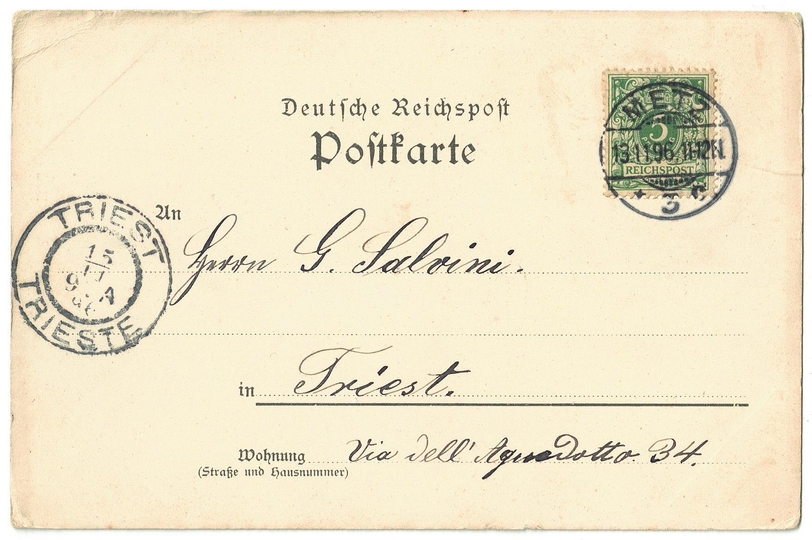 Deutsche Reichspost
Postkarte
METZ
5
13.11.96.11-12N.
REICHSPOST
* 3 c
TRIEST
15
11
96
TRIESTE
An
Herrn G. Salvini.
in Triest.
Wohnung Via dell' Aquedotto 34.
(Straße und Hausnummer)